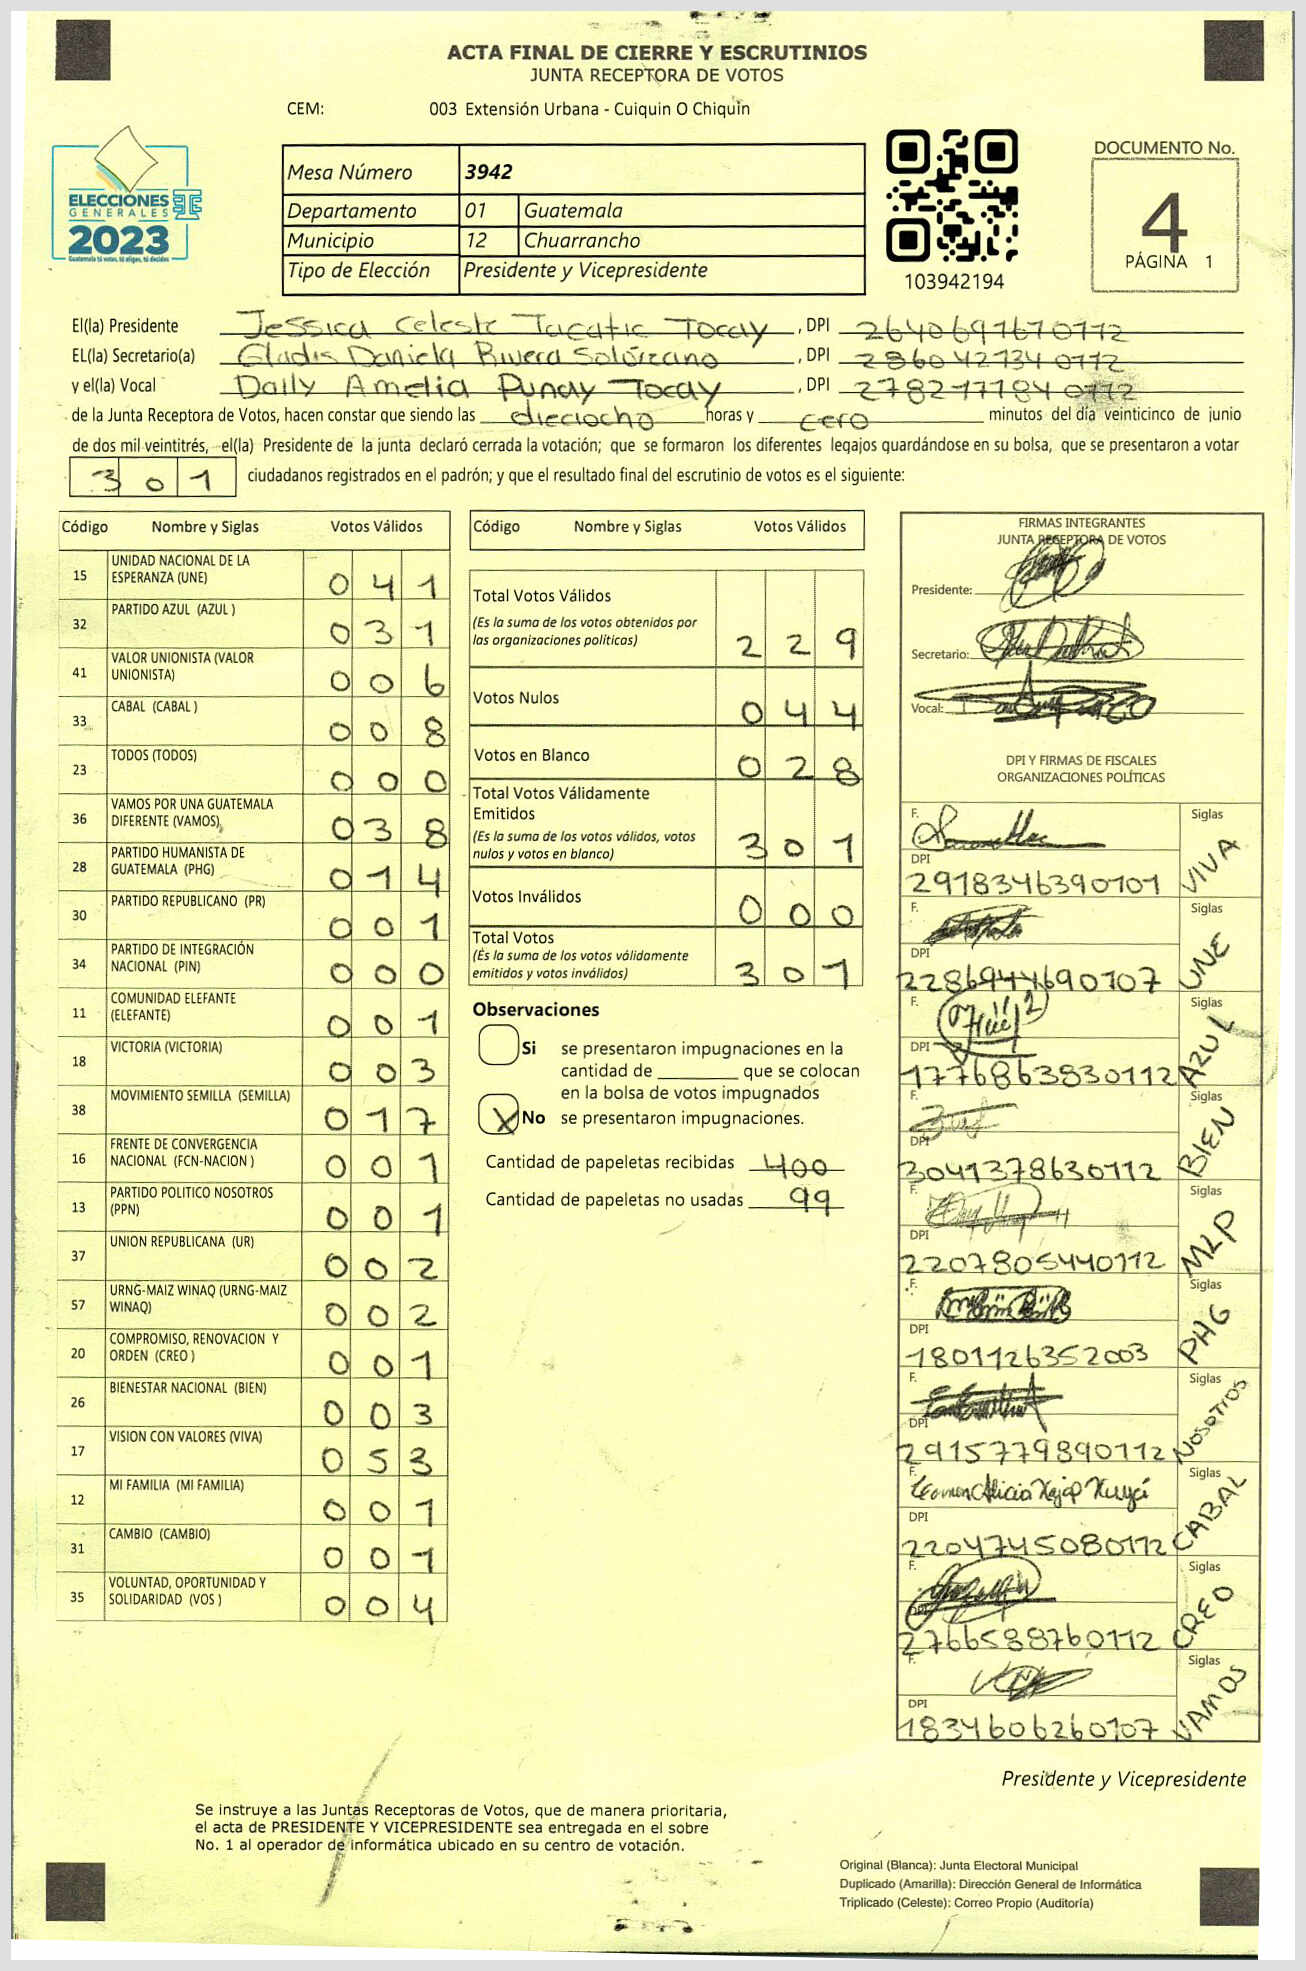 ACTA FINAL DE CIERRE Y ESCRUTINIOS
JUNTA RECEPTORA DE VOTOS
CEM: 003 Extensión Urbana - Cuiquin O Chiquin
ELECCIONES
GENERALES
2023
Guatemala tú votas, tú eliges, tú decides
Mesa Número 3942
Departamento 01 Guatemala
Municipio 12 Chuarrancho
Tipo de Elección Presidente y Vicepresidente
103942194
DOCUMENTO No.
4
PÁGINA 1
El(la) Presidente Jessica Celeste Tacatic Tocay, DPI 2640697670112
EL(la) Secretario(a) Gladis Daniela Rivera Solórzano, DPI 2860427340112
y el(la) Vocal Daily Amelia Punay Tocay, DPI 2782177840112
de la Junta Receptora de Votos, hacen constar que siendo las dieciocho horas y cero minutos del día veinticinco de junio
de dos mil veintitrés, el(la) Presidente de la junta declaró cerrada la votación; que se formaron los diferentes legajos guardándose en su bolsa, que se presentaron a votar
301 ciudadanos registrados en el padrón; y que el resultado final del escrutinio de votos es el siguiente:
Código Nombre y Siglas Votos Válidos
15 UNIDAD NACIONAL DE LA
ESPERANZA (UNE) 041
32 PARTIDO AZUL (AZUL ) 031
41 VALOR UNIONISTA (VALOR
UNIONISTA) 006
33 CABAL (CABAL ) 008
23 TODOS (TODOS) 000
36 VAMOS POR UNA GUATEMALA
DIFERENTE (VAMOS) 038
28 PARTIDO HUMANISTA DE
GUATEMALA (PHG) 014
30 PARTIDO REPUBLICANO (PR) 001
34 PARTIDO DE INTEGRACIÓN
NACIONAL (PIN) 000
11 COMUNIDAD ELEFANTE
(ELEFANTE) 001
18 VICTORIA (VICTORIA) 003
38 MOVIMIENTO SEMILLA (SEMILLA) 017
16 FRENTE DE CONVERGENCIA
NACIONAL (FCN-NACION ) 001
13 PARTIDO POLITICO NOSOTROS
(PPN) 001
37 UNION REPUBLICANA (UR) 002
57 URNG-MAIZ WINAQ (URNG-MAIZ
WINAQ) 002
20 COMPROMISO, RENOVACION Y
ORDEN (CREO ) 001
26 BIENESTAR NACIONAL (BIEN) 003
17 VISION CON VALORES (VIVA) 053
12 MI FAMILIA (MI FAMILIA) 001
31 CAMBIO (CAMBIO) 001
35 VOLUNTAD, OPORTUNIDAD Y
SOLIDARIDAD (VOS ) 004
Código Nombre y Siglas Votos Válidos
Total Votos Válidos
(Es la suma de los votos obtenidos por
las organizaciones políticas) 229
Votos Nulos 044
Votos en Blanco 028
Total Votos Válidamente
Emitidos
(Es la suma de los votos válidos, votos
nulos y votos en blanco) 301
Votos Inválidos 000
Total Votos
(Es la suma de los votos válidamente
emitidos y votos inválidos) 301
Observaciones
Si se presentaron impugnaciones en la
cantidad de ________ que se colocan
en la bolsa de votos impugnados
X No se presentaron impugnaciones.
Cantidad de papeletas recibidas 400
Cantidad de papeletas no usadas 99
FIRMAS INTEGRANTES
JUNTA RECEPTORA DE VOTOS
Presidente:
Secretario:
Vocal:
DPI Y FIRMAS DE FISCALES
ORGANIZACIONES POLÍTICAS
F. Siglas VIVA
DPI
2918346390101
F. Siglas UNE
DPI
2286944690107
F. Siglas AZUL
DPI
1776863830112
F. Siglas BIEN
DPI
3041378630112
F. Siglas MLP
DPI
2207805440112
F. Siglas PHG
DPI
1801126352003
F. Siglas NOSOTROS
DPI
2915779890112
F. Alicia Siglas CABAL
DPI
2204745080112
F. Siglas CREO
DPI
2766588760112
F. Siglas VAMOS
DPI
1834606260107
Presidente y Vicepresidente
Se instruye a las Juntas Receptoras de Votos, que de manera prioritaria,
el acta de PRESIDENTE Y VICEPRESIDENTE sea entregada en el sobre
No. 1 al operador de informática ubicado en su centro de votación.
Original (Blanca): Junta Electoral Municipal
Duplicado (Amarilla): Dirección General de Informática
Triplicado (Celeste): Correo Propio (Auditoría)